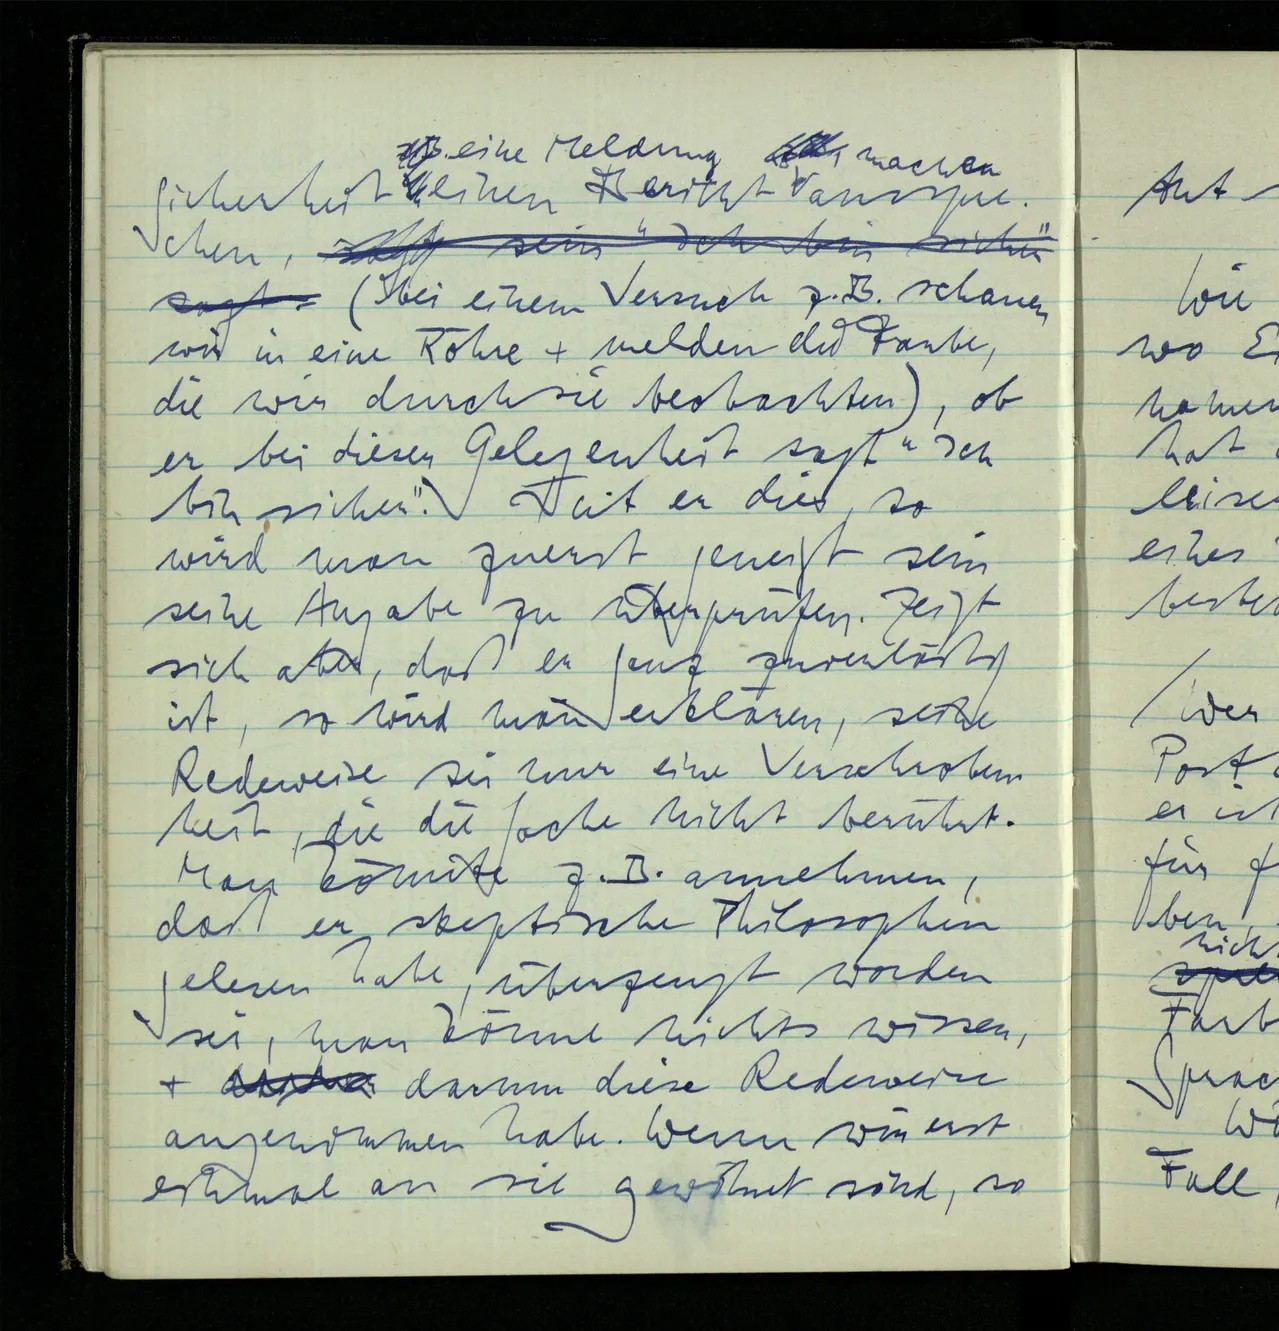 z.B. eine Meldung machen
Sicherheit keinen Bericht
chen, sein "Ich bin sicher"
sagt (bei einem Versuch z.B. schauen
wir in eine Röhre + melden die Farbe,
die wir durch sie beobachten), ob
er bei dieser Gelegenheit sagt "Ich
bin sicher". Tut er dies, so
wird man zuerst geneigt sein
seine Angabe zu überprüfen. Zeigt
sich aber, daß er ganz zuverlässig
ist, so wird man erklären, seine
Redeweise sei nur eine Verschroben-
heit, die die Sache nicht berührt.
Man könnte z.B. annehmen,
daß er skeptische Philosophen
gelesen habe, überzeugt worden
sei, man könne nichts wissen,
+ darum diese Redeweise
angenommen habe. Wenn wir erst
einmal an sie gewöhnt sind, so
Art
Wie
wo
hat
eines
Wer
Post
er ist
für
ben,
nicht
Farb
Sprac
Fall,